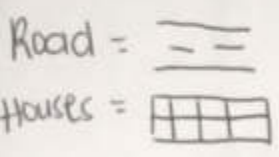 Road =
Houses =